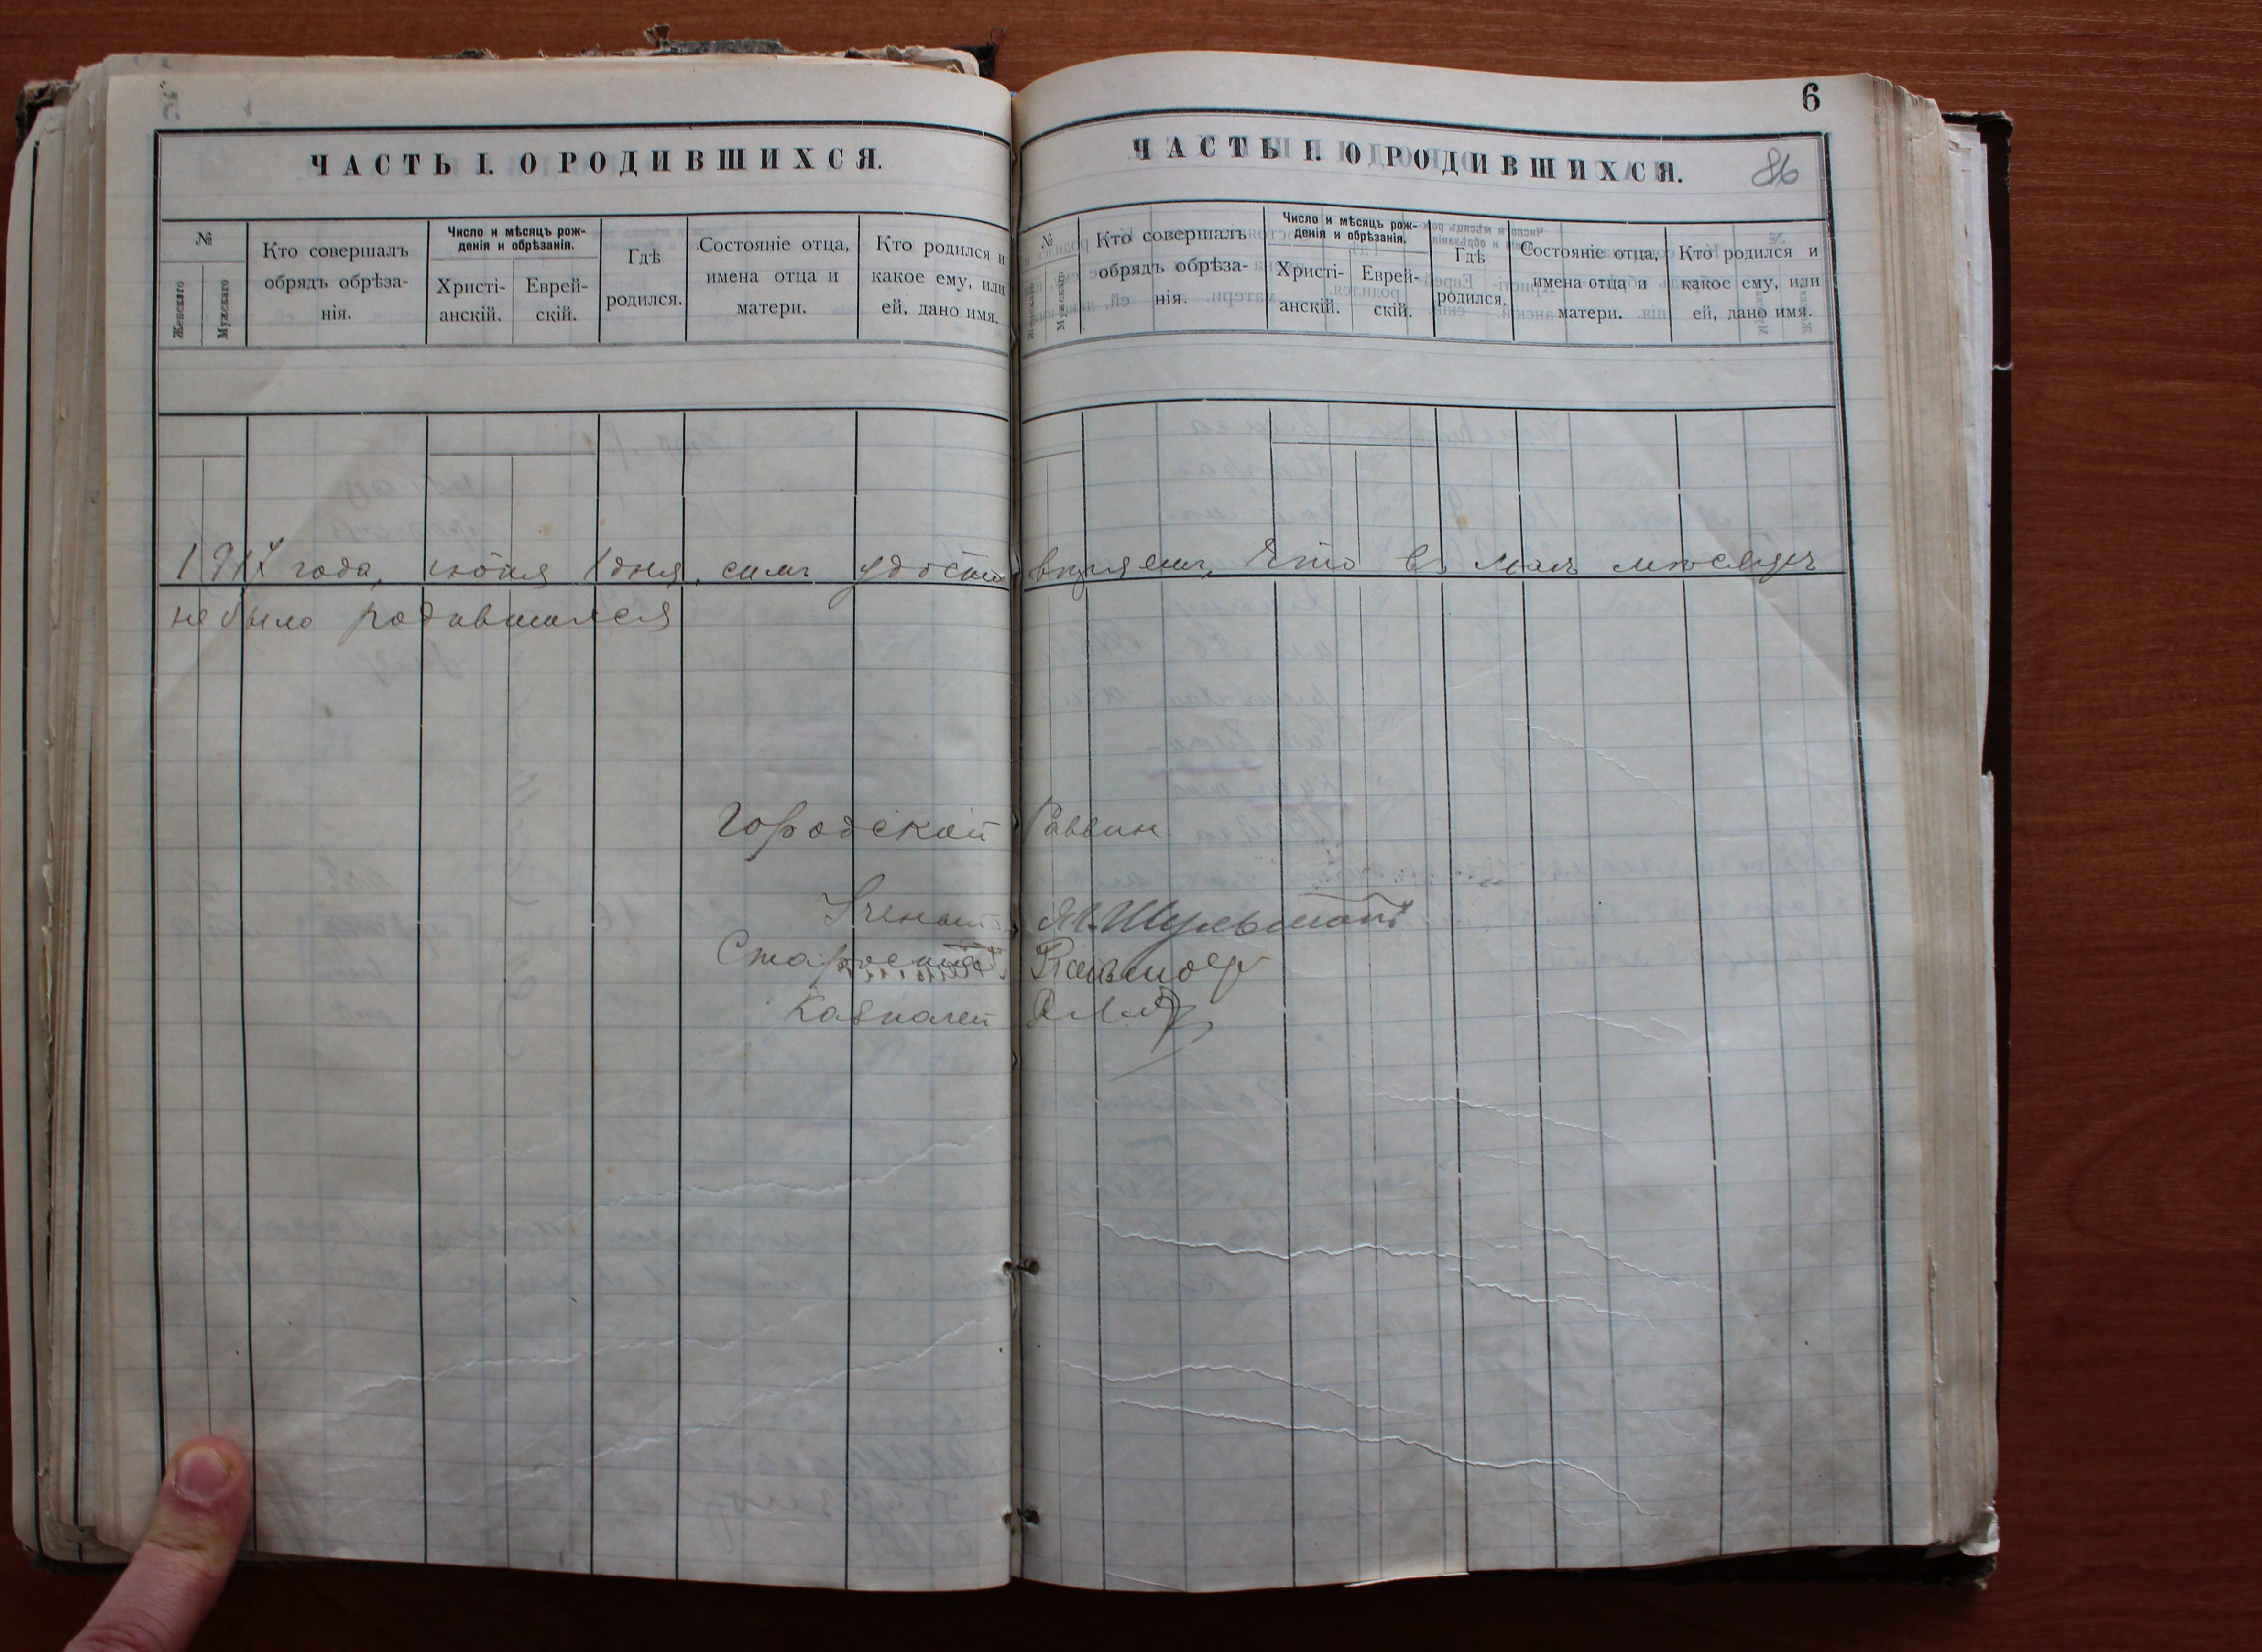 6
ЧАСТЬ I. О РОДИВШИХСЯ.
№
Женскаго
Мужскаго
Кто совершалъ обрядъ обрѣза-
нія.
Число и мѣсяцъ рож-
денія и обрѣзанія.
Христі-
анскій.
Еврей-
скій.
Гдѣ
родился.
Состояніе отца,
имена отца и
матери.
Кто родился и
какое ему, или
ей, дано имя.
ЧАСТЬ I. О РОДИВШИХСЯ.
86
№
Женскаго
Мужскаго
Кто совершалъ
обрядъ обрѣза-
нія.
Число и мѣсяцъ рож-
денія и обрѣзанія.
Христі-
анскій.
Еврей-
скій.
Гдѣ
родился.
Состояніе отца,
имена отца и
матери.
Кто родился и
какое ему, или
ей, дано имя.
1917 года, іюня 1 дня, симъ удосто вѣряемъ, что въ маѣ мѣсяцѣ
не было родившихся
Городской Раввин
Ученый М. Шульманъ
Староста
Казначей